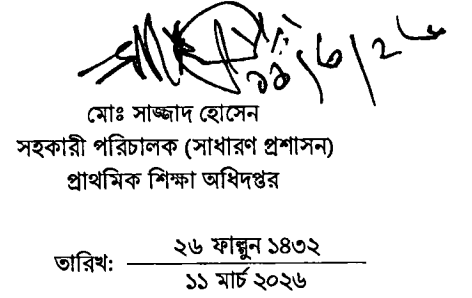 ১১/৩/২৬
মোঃ সাজ্জাদ হোসেন
সহকারী পরিচালক (সাধারণ প্রশাসন)
প্রাথমিক শিক্ষা অধিদপ্তর
তারিখ: ২৬ ফাল্গুন ১৪৩২
১১ মার্চ ২০২৬